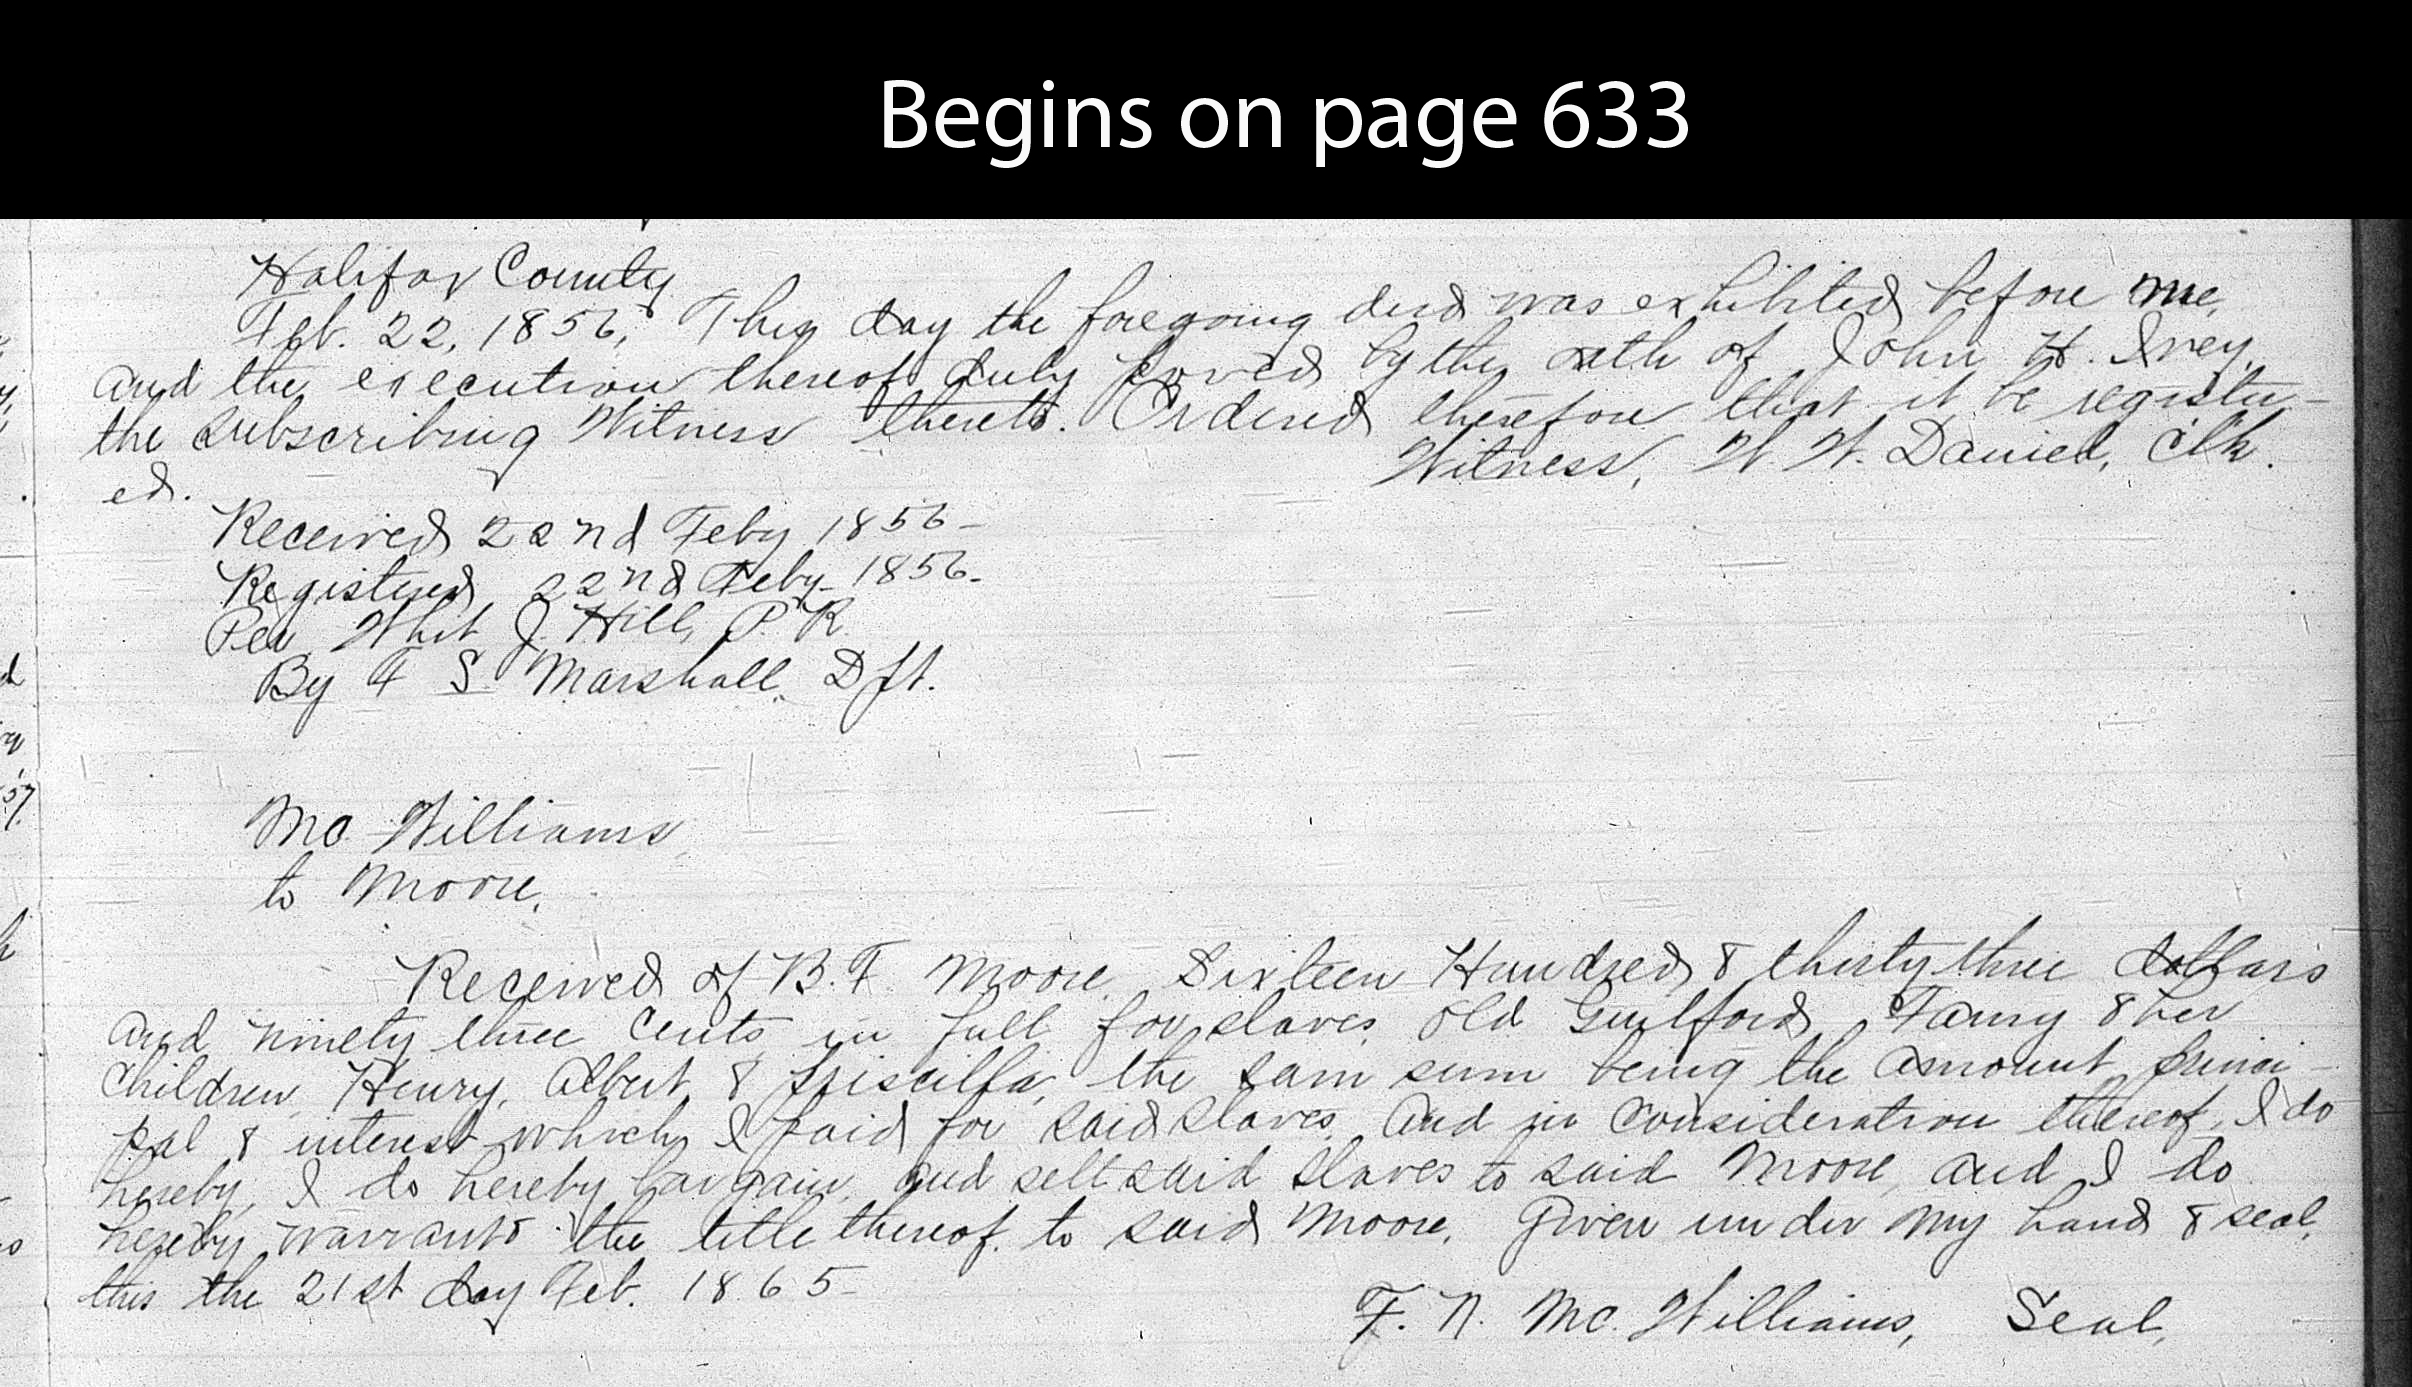 Begins on page 633
Halifax County
Feb. 22, 1856, This day the foregoing deed was exhibited before me,
and the execution thereof duly proved by the oath of John H. Ivey,
the subscribing Witness thereto. Ordered therefore that it be register-
ed.
Witness, W. W. Daniel, Clk.
Received 22nd Feby 1856-
Registered 22nd Feby 1856-
Per Whit J. Hill, P. R
By F S. Marshall, Dpt.
Mc Williams
to Moore.
Received of B. F. Moore Sixteen Hundred & thirty three dollars
and ninety three cents in full for slaves, old Guilford, Fanny & her
Children Henry, Albert, & Priscilla, the sam sum being the amount princi-
pal & interest which I paid for said slaves. And in consideration thereof, I do
hereby, I do hereby bargain and sell said slaves to said Moore, and I do
hereby warrant the title thereof to said Moore. Given under my hand & seal,
this the 21st day Feb. 1865-
F. N. Mc. Williams, Seal,